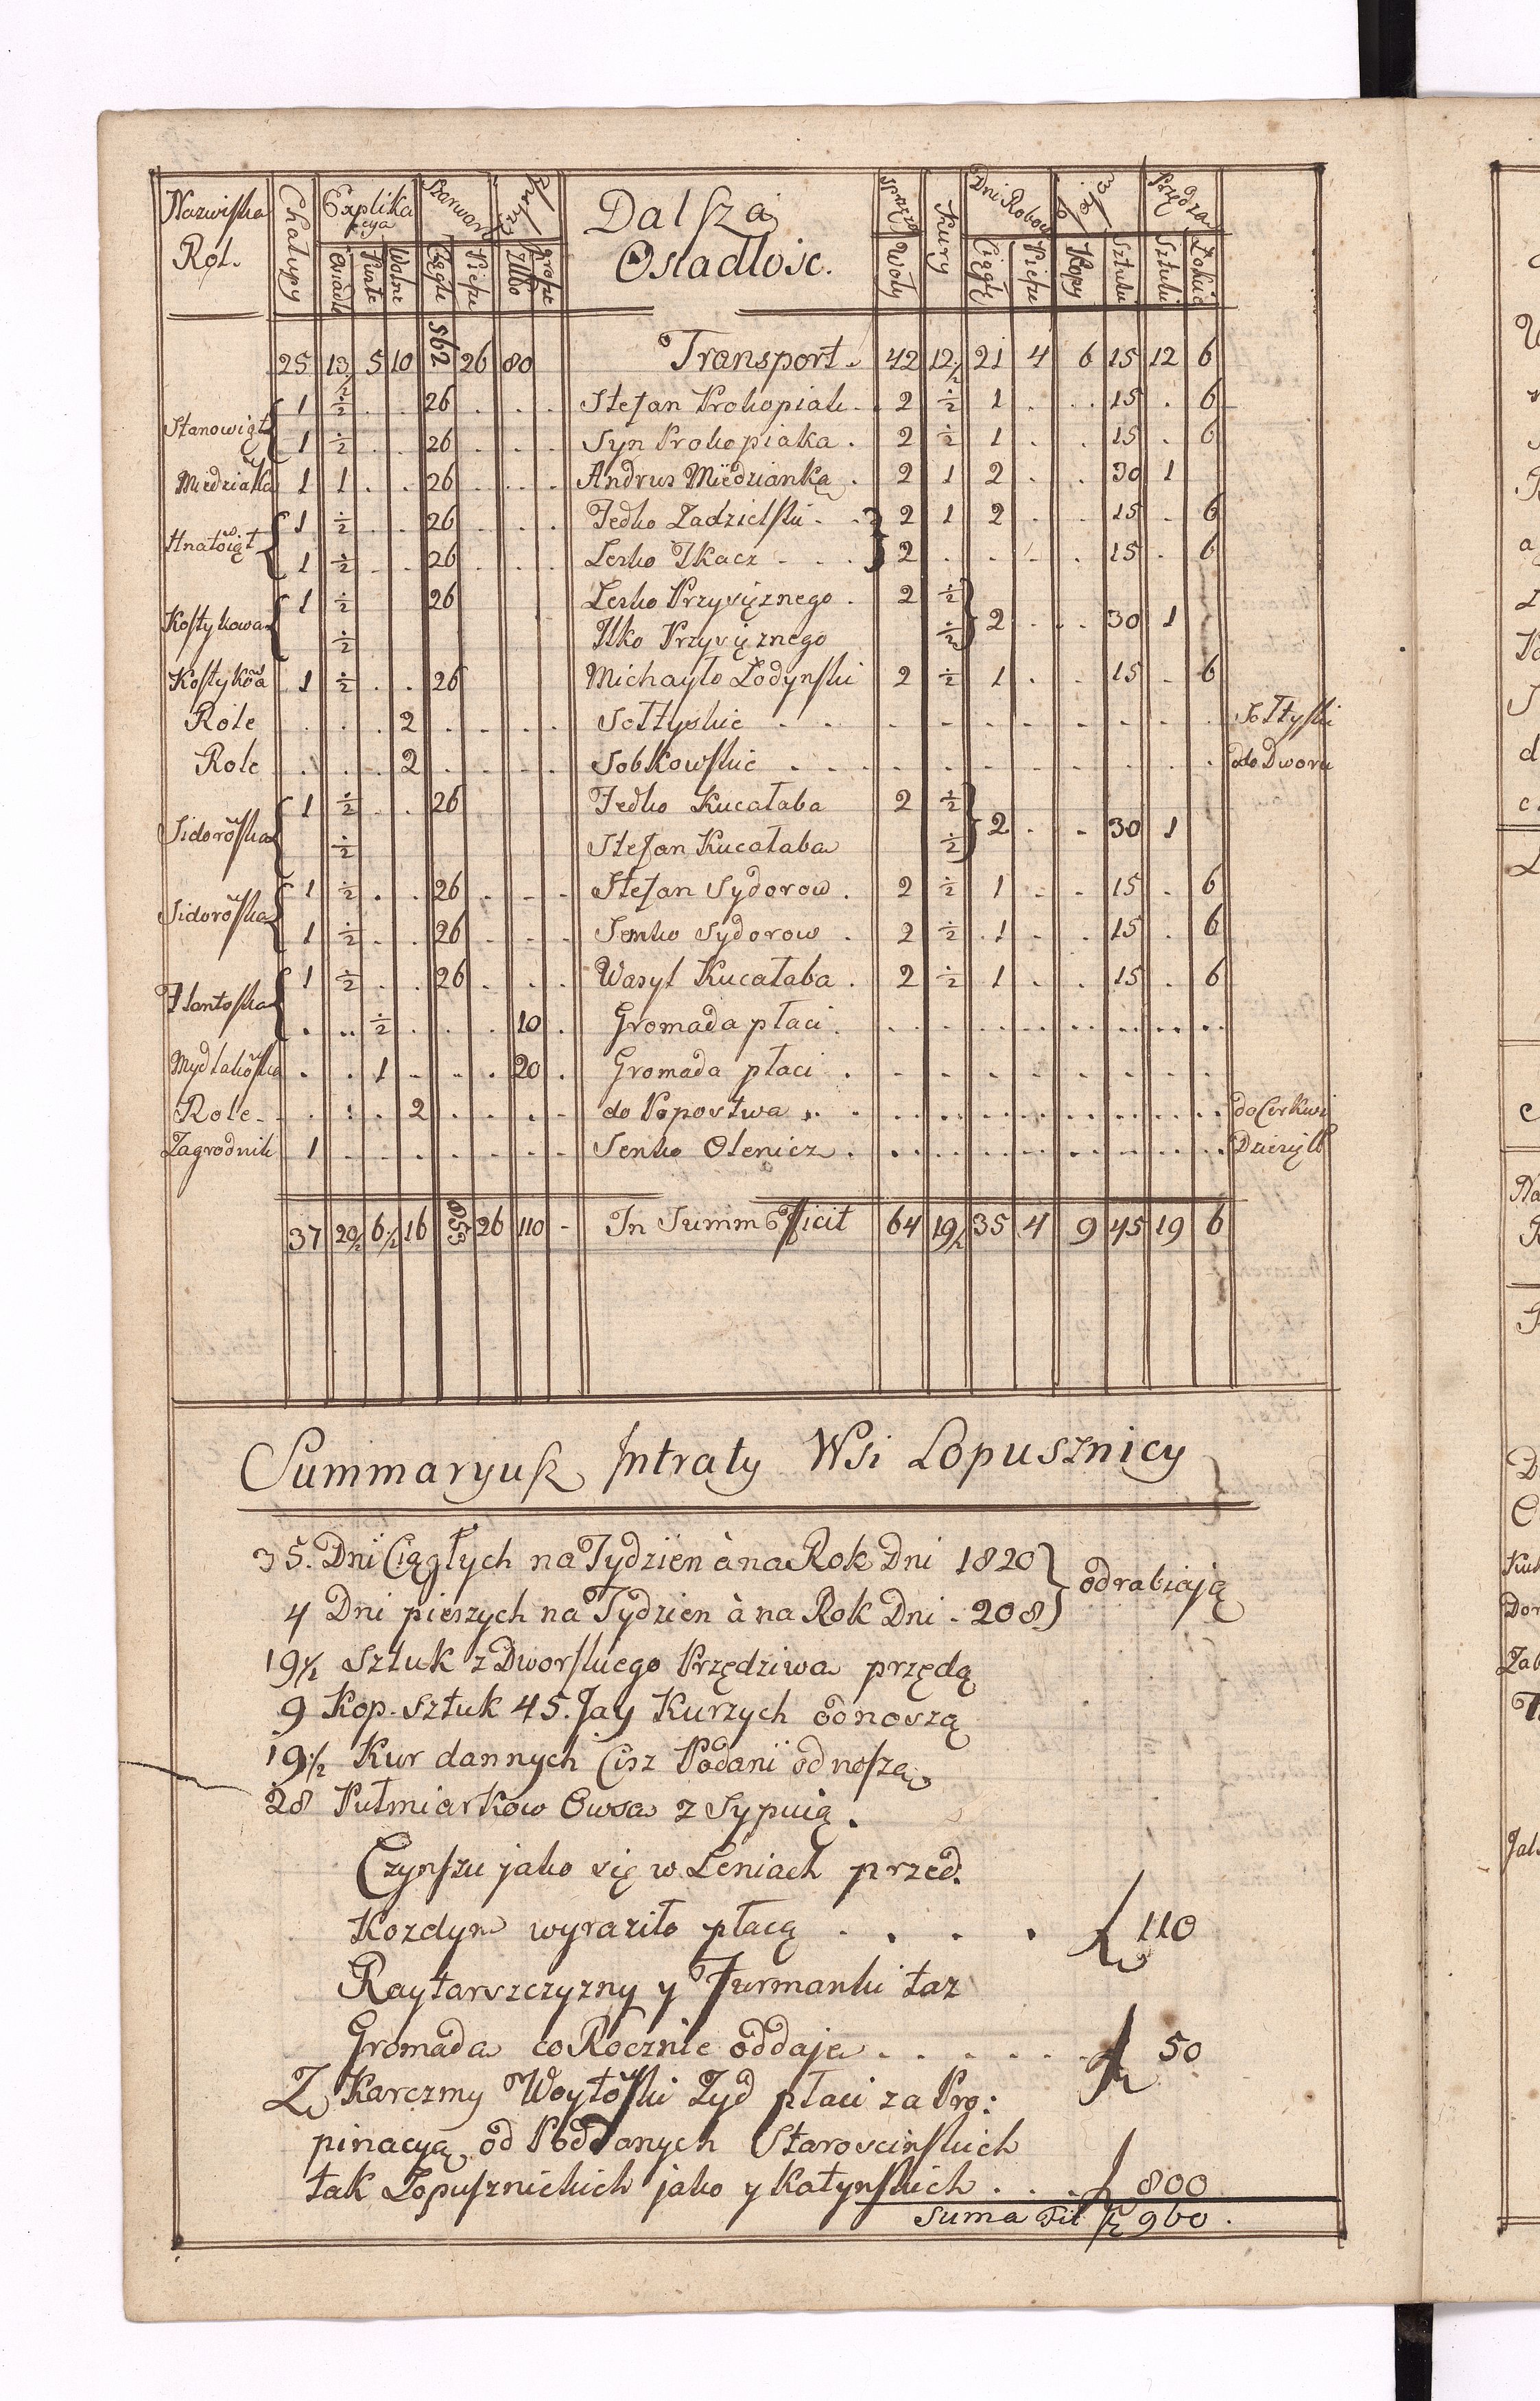 Nazwiska Rol. Chałupy Explikacya Szarwark Dalsza Sprzęża Kury Dni Roboc Przędza
Osiadłe Puste Wolne Ciągłe Piesze Złło grosze Osiadłosc. Woły Ciągłę Piesze Kopy Sztuki Sztuki Łokcie
25 13½ 5 10 562 26 80 Transport. 42 12½ 21 4 6 15 12 6
Stanowięt 1 ½ . . 26 . . . Stefan Prokopiak . 2 ½ 1 . . 15 . 6
1 ½ . . 26 . . . Syn Prokopiaka . 2 ½ 1 . . 15 . 6
Miedziaka 1 1 . . 26 . . . Andrus Miedzianka . 2 1 2 . . 30 1
Hnatowięt 1 ½ . . 26 . . . Fedko Zadzielski . . 2 1 2 . . 15 . 6
1 ½ . . 26 . . . Lesko Tkacz . . . 2 . . . . 15 . 6
Kostykowa 1 ½ 26 Lesko Przysięznego . 2 ½
½ Ilko Przysięznego ½ 2 . . 30 1
Kostykowa 1 ½ . . 26 Michayło Łodynski 2 ½ 1 . . 15 . 6
Role . . . 2 . . . . Sołtyskie . . . . . . . . . Sołtyski
Role . . . 2 . . . . Sobkowskie . . . . . . . . . do Dworu
Sidorowska 1 ½ . . 26 Fedko Kucałaba 2 ½
½ Stefan Kucałaba ½ 2 . . 30 1
Sidorowska 1 ½ . . 26 . . . Stefan Sydorow . 2 ½ 1 . . 15 . 6
1 ½ . . 26 . . . Senko Sydorow . 2 ½ 1 . . 15 . 6
1 ½ . . 26 . . . Wasyl Kucałaba . 2 ½ 1 . . 15 . 6
. . ½ . . . 10 . Gromada płaci . . . . . . . . . .
. . 1 . . . 20 . Gromada płaci . . . . . . . . . .
Role . . . . 2 . . . . do Popostwa . . . . . . . . . . do Cerkwi
Zagrodnik 1 . . . . . . . Senko Olenicz . . . . . . . . . .
37 20½ 6½ 16 853 26 110 - In Summo Ficit 64 19½ 35 4 9 45 19 6
Summaryusz Intraty Wsi Lopusznicy
35. Dni Ciągłych na Tydzien à na Rok Dni 1820 } odrabiaią
4 Dni pieszych na Tydzien à na Rok Dni . 208 }
19½ Sztuk z Dworskiego Przędziwa przędą
9 Kop. sztuk 45. Jay Kurzych odnoszą
19½ Kur dannych Cisz Podani odnoszą
28 Pułmiarkow Owsa z Sypuią .
Czynszu jako się w Leniach przed.
Kozdym wyraziło płacą . . . . 110
Raytarszczyzny y Furmanki taz
Gromada co Rocznie oddaje . . . . . . 50
Z Karczmy Woytoski Zyd płaci za Pro:
pinacyą od Poddanych Starościnskich
tak Łopusznickich jako y Katynskich . . . 800
Suma Fit 960 .